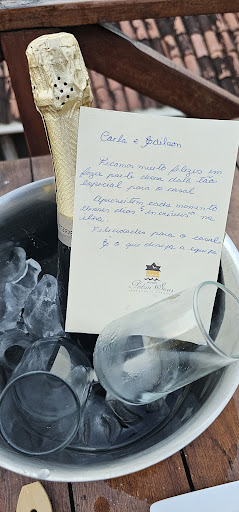 Carla e Edilson
Ficamos muito felizes em
fazer parte dessa data tão
especial para o casal
Aproveitem cada momento
desses dias "incríveis" na
ilha.
Felicidades para o casal
É o que deseja a equipe